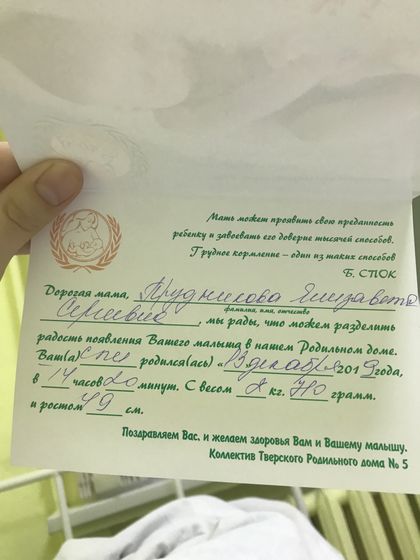 Мать может проявить свою преданность
ребенку и завоевать его доверие тысячей способов.
Грудное кормление – один из таких способов
Б. СПОК
Дорогая мама, Прудникова Елизавета
фамилия, имя, отчество
Сергеевна, мы рады, что можем разделить
радость появления Вашего малыша в нашем Родильном доме.
Ваш(а) сын родился(ась) « » декабря 2019 года,
в 14 часов 20 минут. С весом кг. грамм.
и ростом 49 см.
Поздравляем Вас, и желаем здоровья Вам и Вашему малышу.
Коллектив Тверского Родильного дома № 5